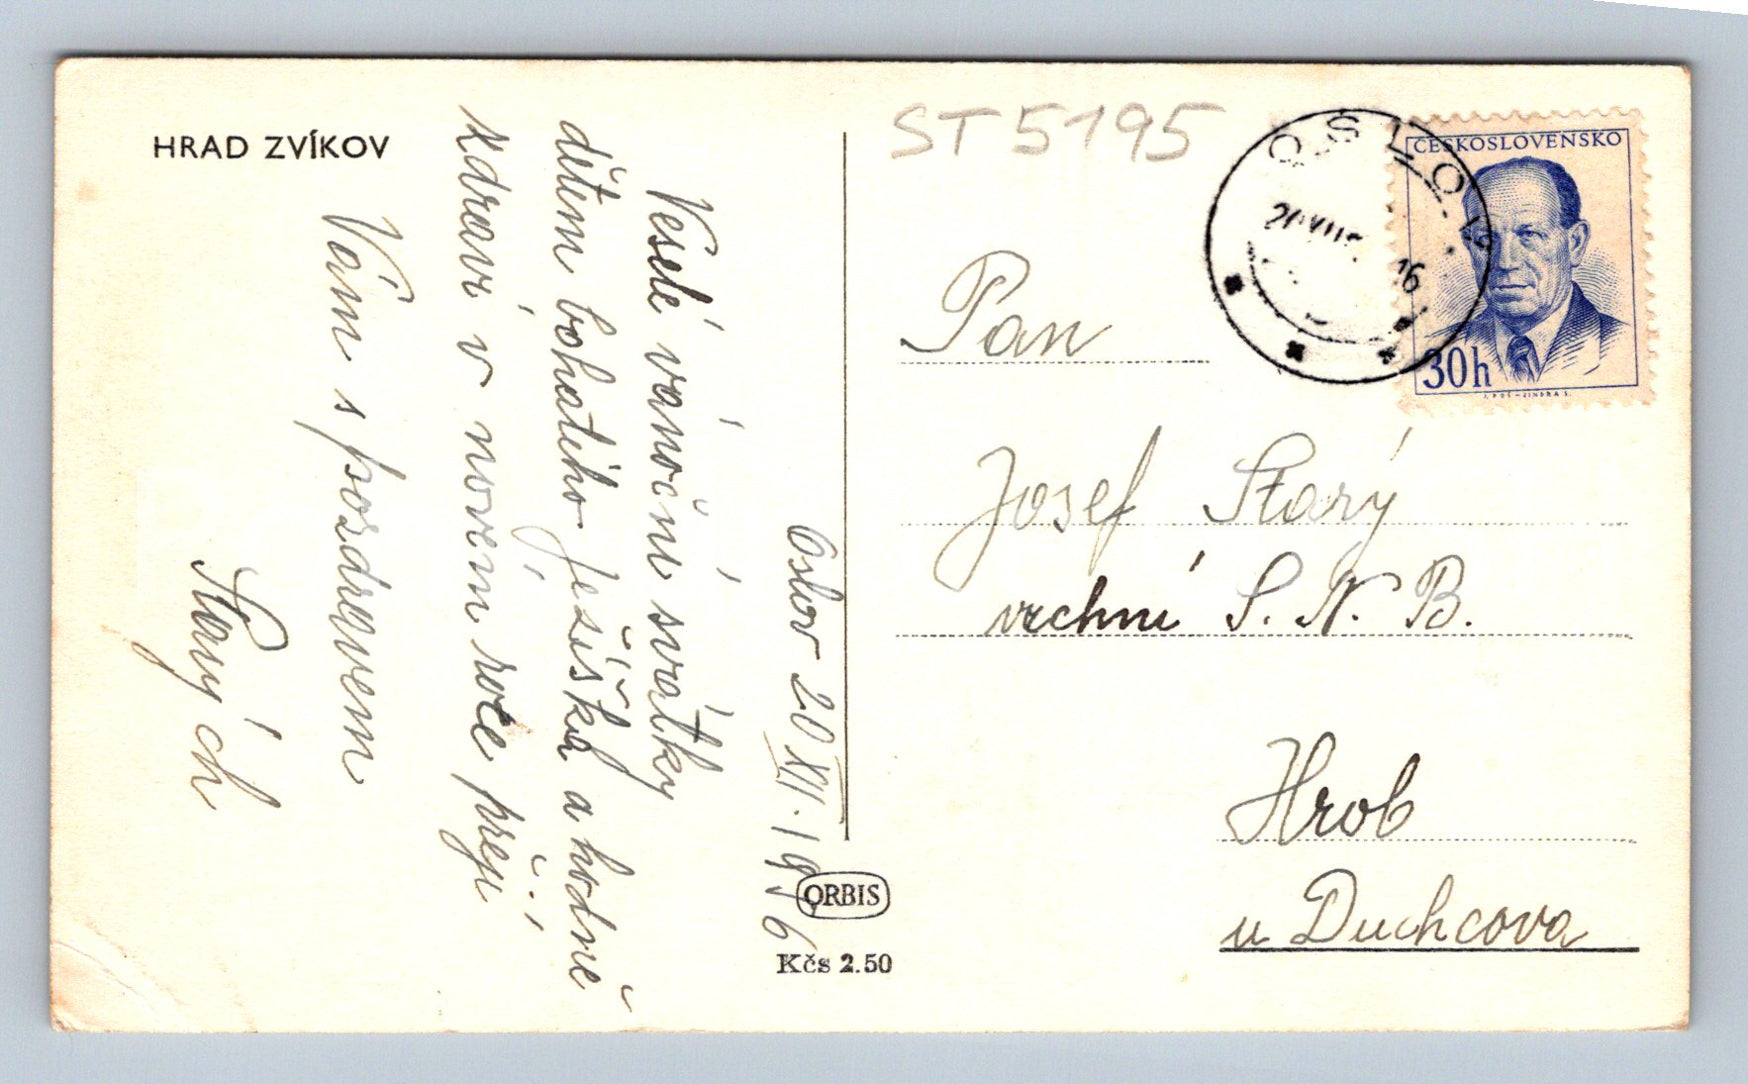 HRAD ZVÍKOV
Oslov 20 XII. 1956
Veselé vánoční svátky
dětem bohatého ježíška a hodně
zdraví v novém roce přeji
Vám s pozdravem
Starých
ORBIS
Kčs 2.50
ST 5195
OSLOV
16
ČESKOSLOVENSKO
30h
Pan
Josef Starý
vrchní S. N. B.
Hrob
u Duchcova